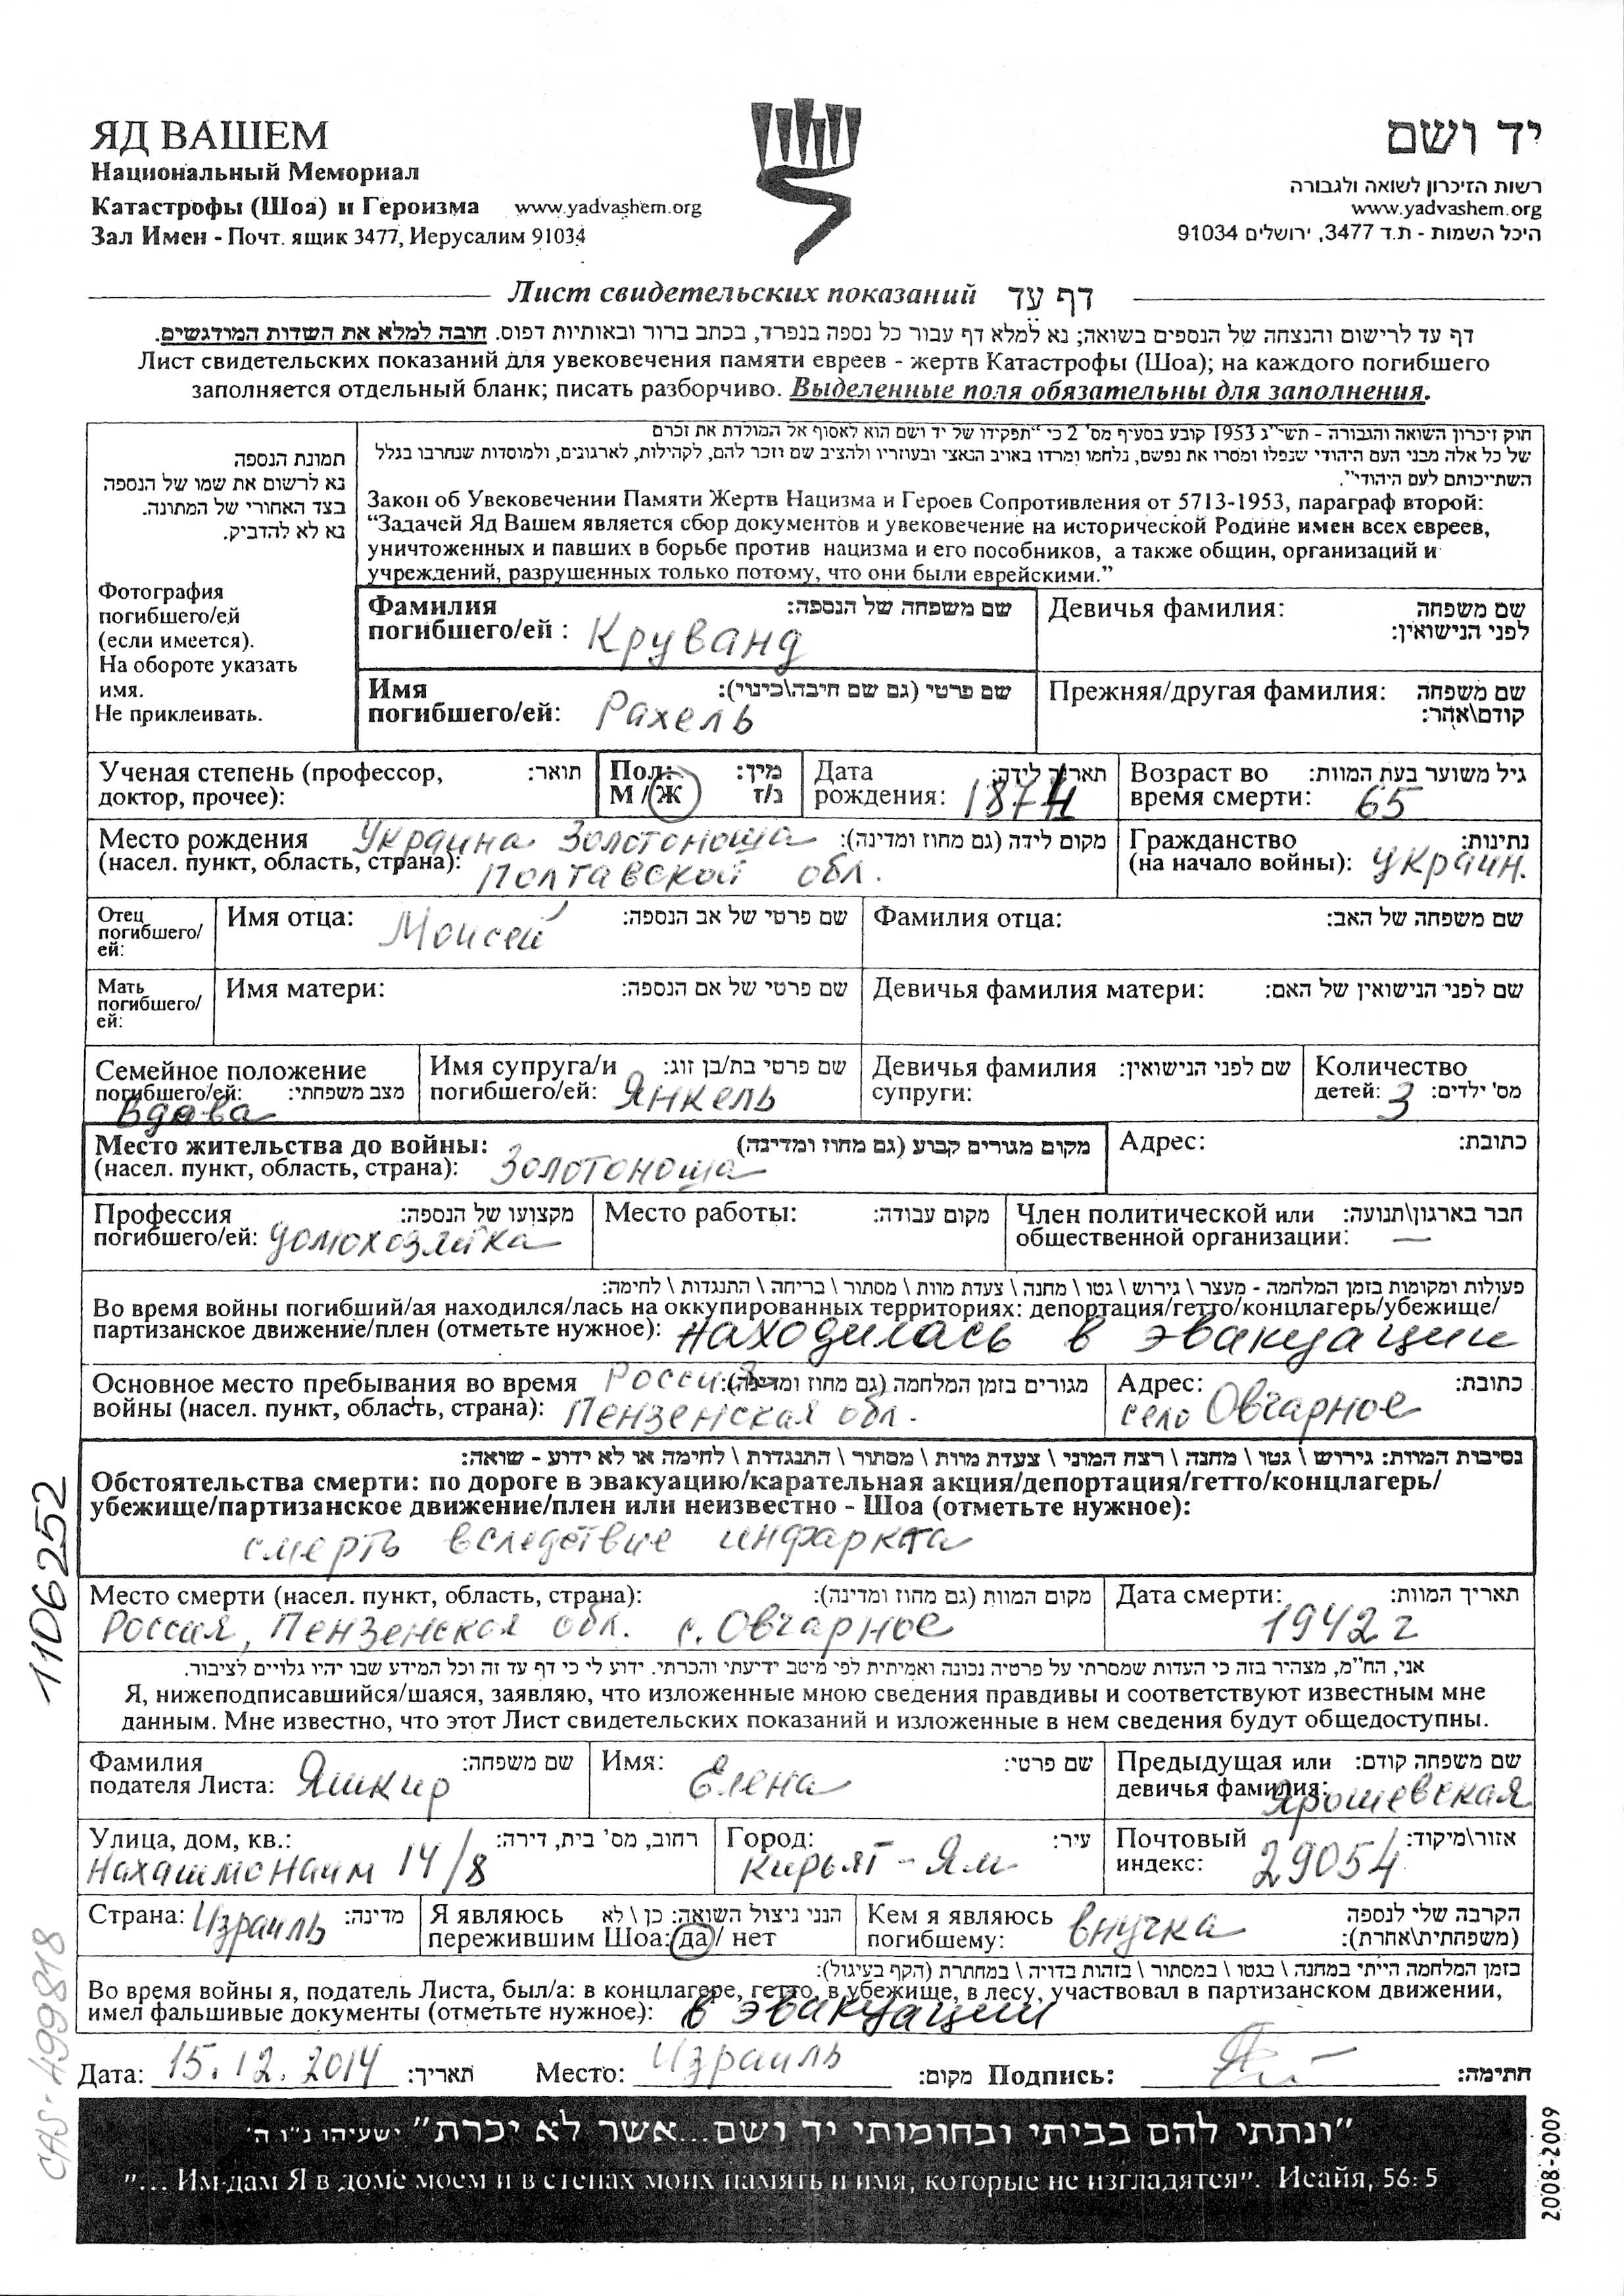 ЯД ВАШЕМ
Национальный Мемориал
Катастрофы (Шоа) и Героизма www.yadvashem.org
Зал Имен - Почт. ящик 3477, Иерусалим 91034
יד ושם
רשות הזיכרון לשואה ולגבורה
www.yadvashem.org
היכל השמות - ת.ד 3477, ירושלים 91034
Лист свидетельских показаний דף עד
דף עד לרישום והנצחה של הנספים בשואה; נא למלא דף עבור כל נספה בנפרד, בכתב ברור ובאותיות דפוס. חובה למלא את השדות המודגשים.
Лист свидетельских показаний для увековечения памяти евреев - жертв Катастрофы (Шоа); на каждого погибшего
заполняется отдельный бланк; писать разборчиво. Выделенные поля обязательны для заполнения.
תמונת הנספה
נא לרשום את שמו של הנספה
בצד האחורי של המתונה.
נא לא להדביק.
Фотография
погибшего/ей
(если имеется).
На обороте указать
имя.
Не приклеивать.
חוק זיכרון השואה והגבורה - תשי"ג 1953 קובע בסעיף מס' 2 כי "תפקידו של יד ושם הוא לאסוף אל המולדת את זכרם
של כל אלה מבני העם היהודי שנפלו ומסרו את נפשם, נלחמו ומרדו באויב הנאצי ובעוזריו ולהציב שם וזכר להם, לקהילות, לארגונים, ולמוסדות שנחרבו בגלל
השתייכותם לעם היהודי".
Закон об Увековечении Памяти Жертв Нацизма и Героев Сопротивления от 5713-1953, параграф второй:
“Задачей Яд Вашем является сбор документов и увековечение на исторической Родине имен всех евреев,
уничтоженных и павших в борьбе против нацизма и его пособников, а также общин, организаций и
учреждений, разрушенных только потому, что они были еврейскими.”
Фамилия שם משפחה של הנספה:
погибшего/ей : Круванд
Девичья фамилия: שם משפחה
לפני הנישואין:
Имя שם פרטי (גם שם חיבה\כינוי):
погибшего/ей: Рахель
Прежняя/другая фамилия: שם משפחה
קודם\אחר:
Ученая степень (профессор, תואר:
доктор, прочее):
Пол: מין:
М / Ж ז/נ
Дата תאריך לידה:
рождения: 1874
Возраст во גיל משוער בעת המוות:
время смерти: 65
Место рождения Украина Золотоноша מקום לידה (גם מחוז ומדינה):
(насел. пункт, область, страна): Полтавской обл.
Гражданство נתינות:
(на начало войны): Украин.
Отец
погибшего/
ей:
Имя отца: Моисей שם פרטי של אב הנספה:
Фамилия отца: שם משפחה של האב:
Мать
погибшего/
ей:
Имя матери: שם פרטי של אם הנספה:
Девичья фамилия матери: שם לפני הנישואין של האם:
Семейное положение
погибшего/ей: מצב משפחתי:
Вдова
Имя супруга/и שם פרטי בת/בן זוג:
погибшего/ей: Янкель
Девичья фамилия שם לפני הנישואין:
супруги:
Количество
детей: 3 מס' ילדים:
Место жительства до войны: מקום מגורים קבוע (גם מחוז ומדינה)
(насел. пункт, область, страна): Золотоноша
Адрес: כתובת:
Профессия מקצועו של הנספה:
погибшего/ей: домохозяйка
Место работы: מקום עבודה:
Член политической или חבר בארגון\תנועה:
общественной организации: —
פעולות ומקומות בזמן המלחמה - מעצר \ גירוש \ גטו \ מחנה \ צעדת מוות \ מסתור \ בריחה \ התנגדות \ לחימה:
Во время войны погибший/ая находился/лась на оккупированных территориях: депортация/гетто/концлагерь/убежище/
партизанское движение/плен (отметьте нужное): находилась в эвакуации
Основное место пребывания во время Россия מגורים בזמן המלחמה (גם מחוז ומדינה):
войны (насел. пункт, область, страна): Пензенская обл.
Адрес: כתובת:
село Овчарное
נסיבות המוות: גירוש \ גטו \ מחנה \ רצח המוני \ צעדת מוות \ מסתור \ התנגדות \ לחימה או לא ידוע - שואה:
Обстоятельства смерти: по дороге в эвакуацию/карательная акция/депортация/гетто/концлагерь/
убежище/партизанское движение/плен или неизвестно - Шоа (отметьте нужное):
смерть вследствие инфаркта
Место смерти (насел. пункт, область, страна): מקום המוות (גם מחוז ומדינה):
Россия, Пензенская обл. с. Овчарное
Дата смерти: תאריך המוות:
1942 г
אני, הח"מ, מצהיר בזה כי העדות שמסרתי על פרטיה נכונה ואמיתית לפי מיטב ידיעתי והכרתי. ידוע לי כי דף עד זה וכל המידע שבו יהיו גלויים לציבור.
Я, нижеподписавшийся/шаяся, заявляю, что изложенные мною сведения правдивы и соответствуют известным мне
данным. Мне известно, что этот Лист свидетельских показаний и изложенные в нем сведения будут общедоступны.
Фамилия שם משפחה:
подателя Листа: Яшкир
Имя: Елена שם פרטי:
Предыдущая или שם משפחה קודם:
девичья фамилия: Ярошевская
Улица, дом, кв.: רחוב, מס' בית, דירה:
Нахашмонаим 14/8
Город: עיר:
Кирьят-Ям
Почтовый אזור\מיקוד:
индекс: 29054
Страна: Израиль מדינה:
Я являюсь הנני ניצול השואה: כן \ לא
пережившим Шоа: да / нет
Кем я являюсь внучка הקרבה שלי לנספה
погибшему: (משפחתית\אחרת):
בזמן המלחמה הייתי במחנה \ בגטו \ במסתור \ בזהות בדויה \ במחתרת (הקף בעיגול):
Во время войны я, податель Листа, был/а: в концлагере, гетто, в убежище, в лесу, участвовал в партизанском движении,
имел фальшивые документы (отметьте нужное): в эвакуации
Дата: 15.12.2014 תאריך: Место: Израиль מקום: Подпись: חתימה:
"ונתתי להם בביתי ובחומותי יד ושם...אשר לא יכרת" ישעיהו נ"ו ה'
"... Им дам Я в доме моем и в стенах моих память и имя, которые не изгладятся". Исайя, 56: 5
1106252
CAS-499818
2008-2009